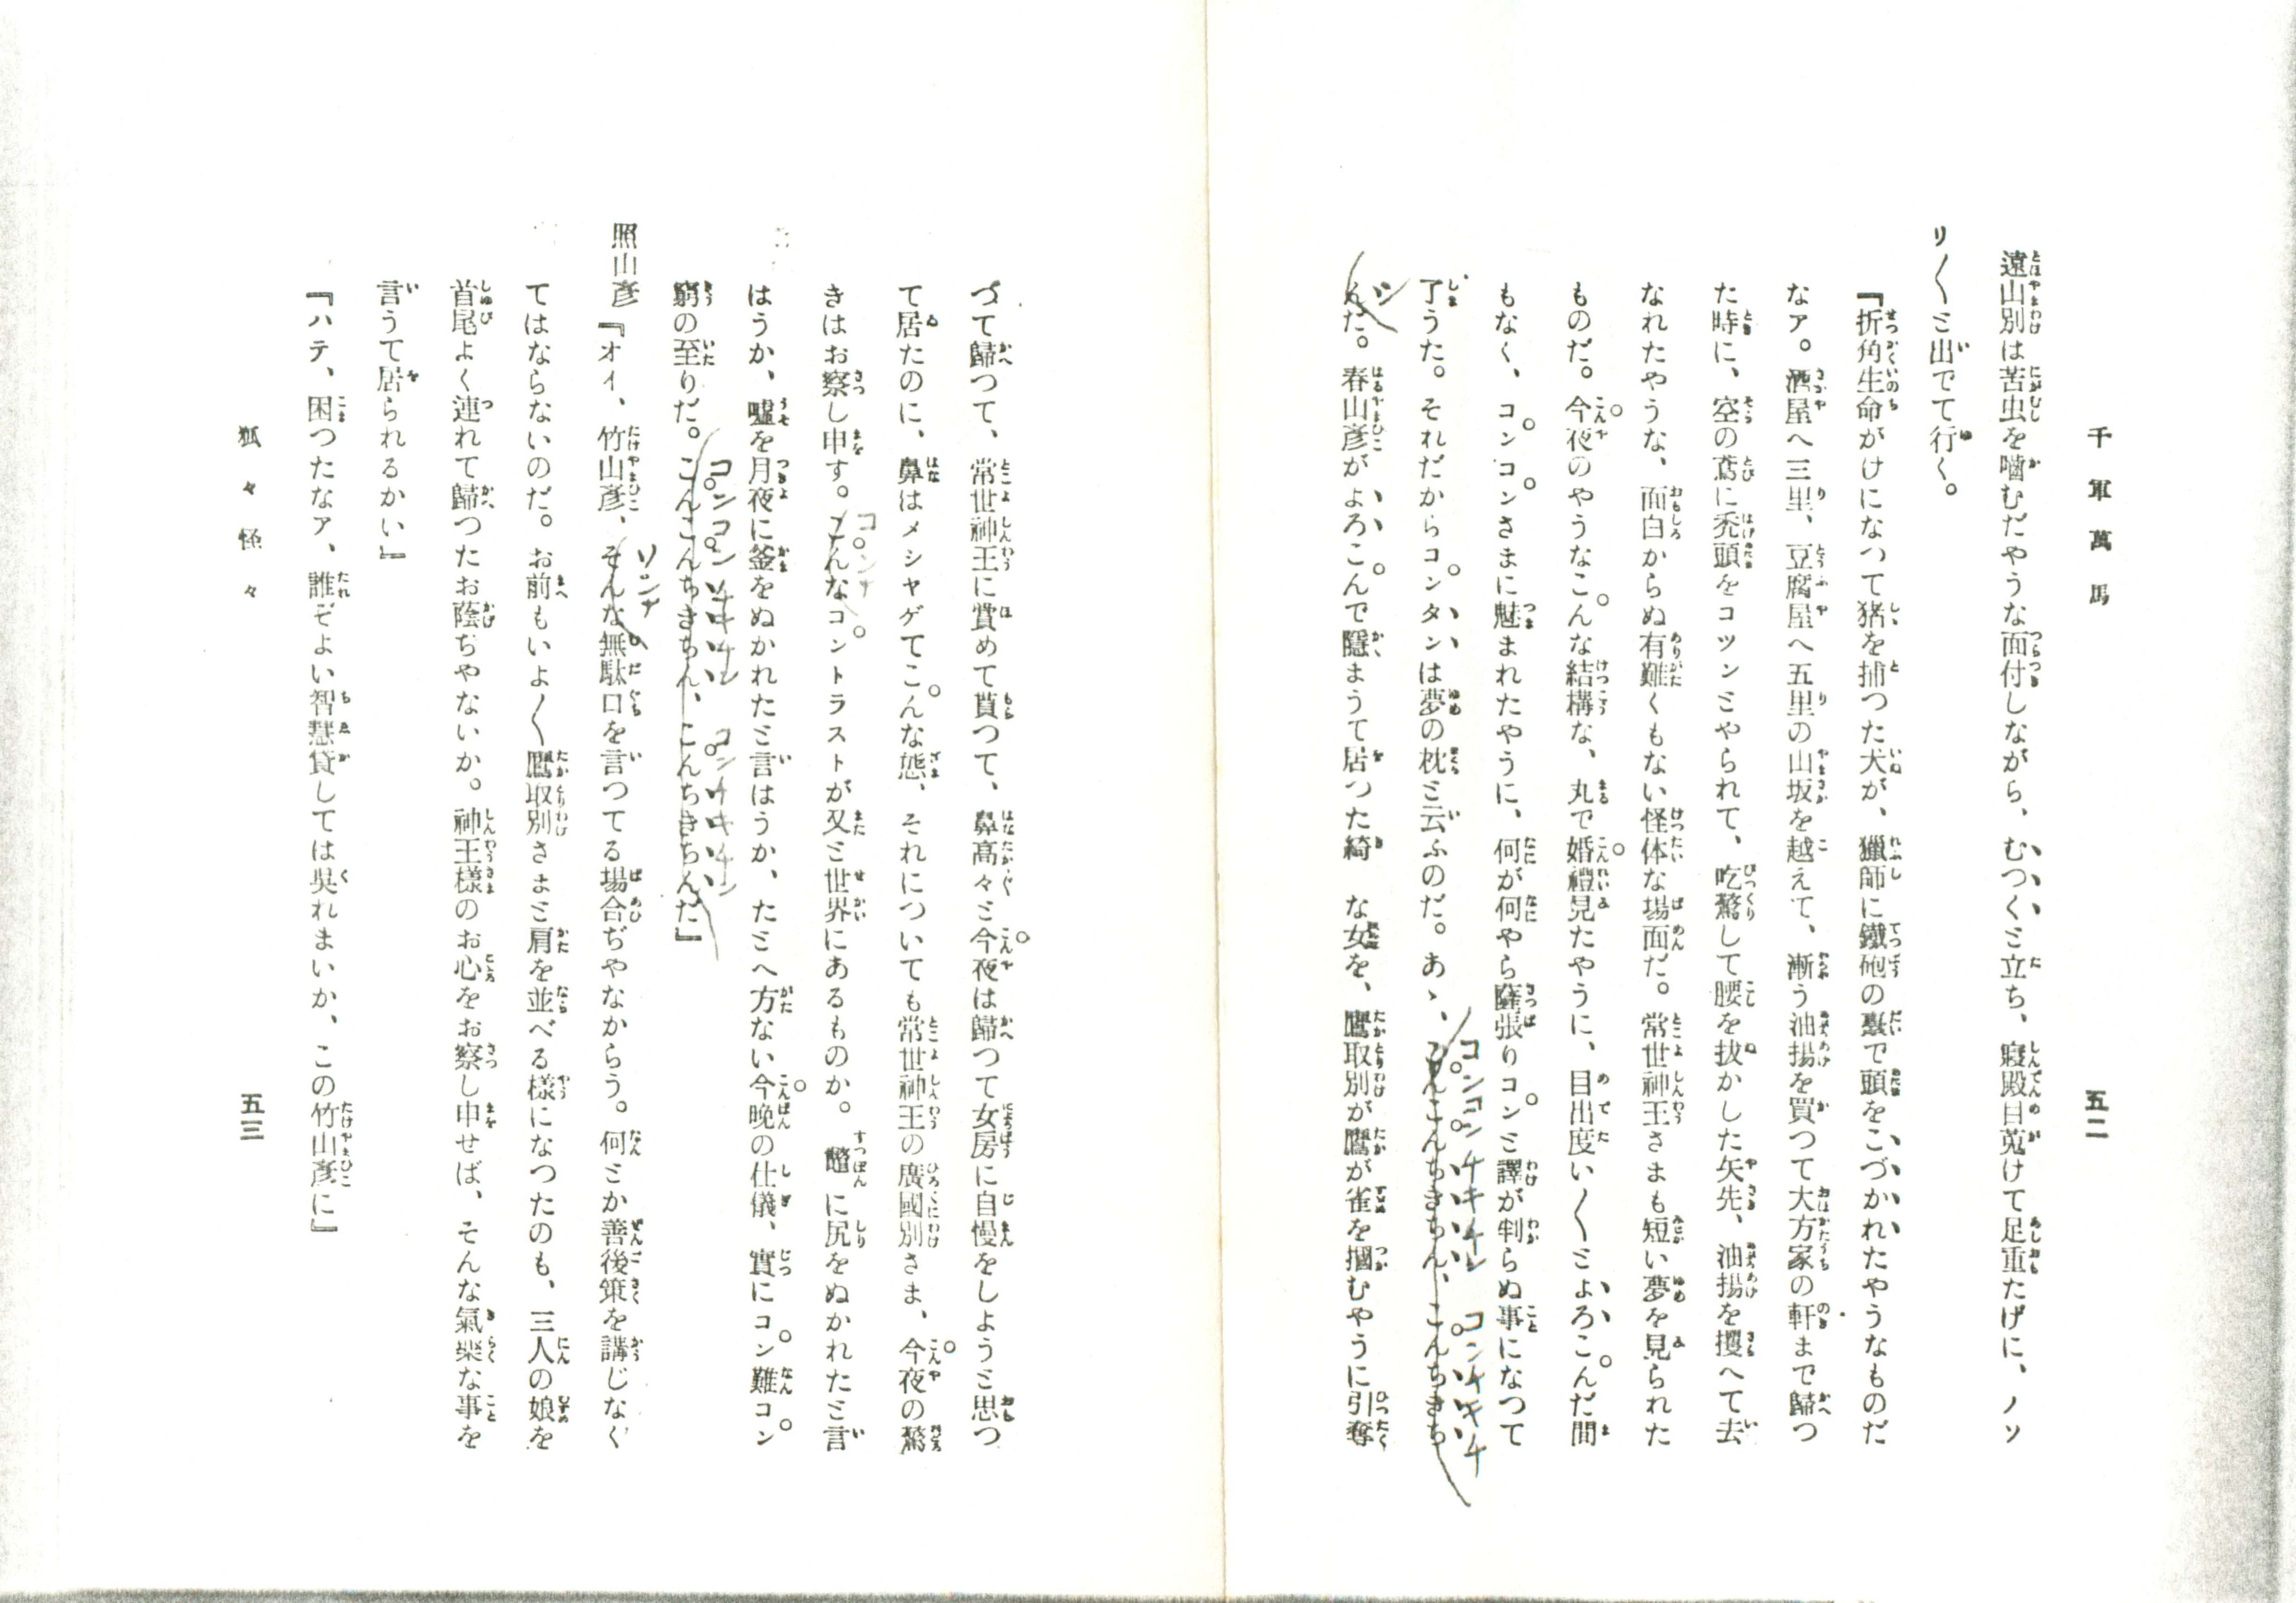 千軍萬馬
五二
遠山別は苦虫を嚙むだやうな面付しながら、むつくミ立ち、寢殿目蒐けて足重たげに、ノソ
リ〱ミ出でて行く。
『折角生命がけになつて猪を捕つた犬が、獵師に鐵砲の臺で頭をこづかれたやうなものだ
なア。酒屋へ三里、豆腐屋へ五里の山坂を越えて、漸う油揚を買つて大方家の軒まで歸つ
た時に、空の鳶に禿頭をコツンミやられて、吃驚して腰を拔かした矢先、油揚を攫へて去
なれたやうな、面白からぬ有難くもない怪体な場面だ。常世神王さまも短い夢を見られた
ものだ。今夜のやうなこんな結構な、丸で婚禮見たやうに、目出度い〱ミよろこんだ間
もなく、コンコンさまに魅まれたやうに、何が何やら薩張りコンミ譯が判らぬ事になつて
了うた。それだからコンタンは夢の枕ミ云ふのだ。あゝ、こんこんちきちん、こんちきち
コンコンチキチン コンチキチ
んだ。春山彥がよろこんで隱まうて居つた綺 な女を、鷹取別が鷹が雀を摑むやうに引奪
ン
つて歸つて、常世神王に賞めて貰つて、鼻高々ミ今夜は歸つて女房に自慢をしようミ思つ
て居たのに、鼻はメシヤゲてこんな態、それについても常世神王の廣國別さま、今夜の驚
きはお察し申す。こんなコントラストが又ミ世界にあるものか。鼈に尻をぬかれたミ言
コンナ
はうか、嘘を月夜に釜をぬかれたミ言はうか、たミへ方ない今晚の仕儀、實にコン難コン
窮の至りだ。こんこんちきちん、こんちきちんだ』
コンコンチキチン コンチキチン
照山彥『オイ、竹山彥、そんな無駄口を言つてる場合ぢやなからう。何ミか善後策を講じなく
ソンナ
てはならないのだ。お前もいよ〱鷹取別さまミ肩を並べる樣になつたのも、三人の娘を
首尾よく連れて歸つたお蔭ぢやないか。神王樣のお心をお察し申せば、そんな氣樂な事を
言うて居られるかい』
『ハテ、困つたなア、誰ぞよい智慧貸しては吳れまいか、この竹山彥に』
狐々怪々
五三